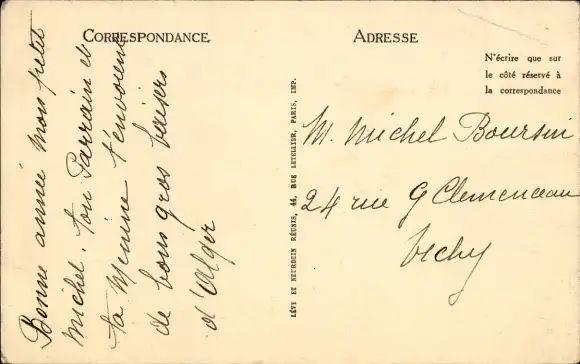 CORRESPONDANCE
Bonne année mon petit
Michel, ton Parrain et
ta Menine t'envoient
de bons gros baisers
d'Alger
LÉVY ET NEURDEIN RÉUNIS, 44, RUE LETELLIER, PARIS, IMP.
ADRESSE
N'écrire que sur
le côté réservé à
la correspondance
M. Michel Boursin
24 rue G Clemenceau
Vichy